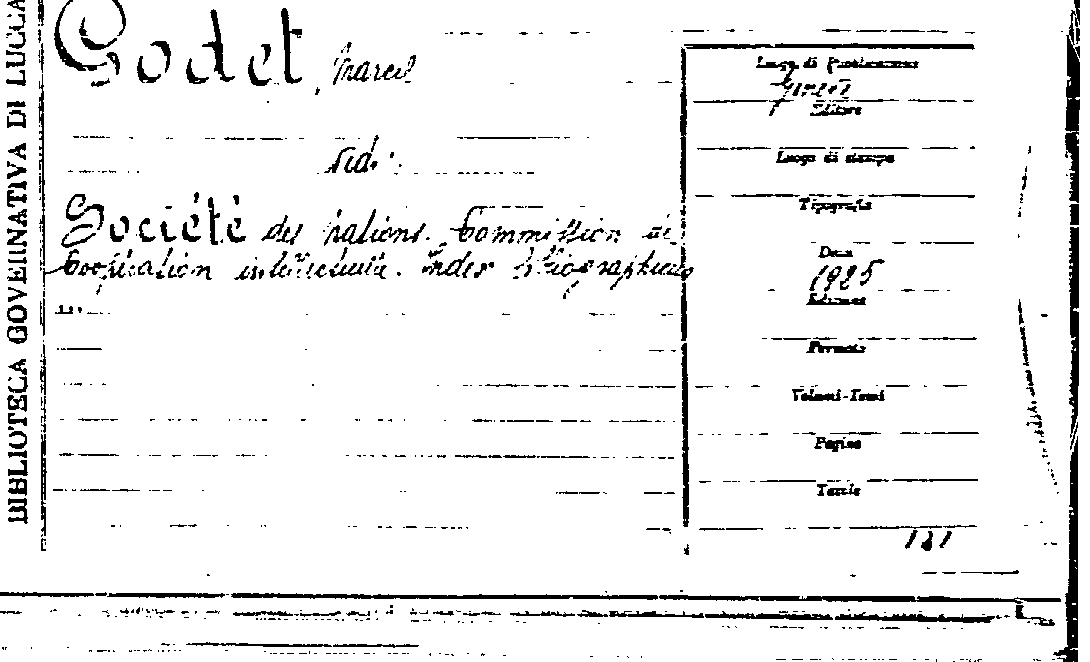 BIBLIOTECA GOVERNATIVA DI LUCCA
Godet, Marcel
Vid:
Société des nations. Commission de
Coopération intellectuelle. Index bibliographicus
...
Luogo di Pubblicazione
Genève
Editore
Luogo di stampa
Tipografia
Data
1925
Edizione
Formato
Volumi-Tomi
Pagine
Tavole